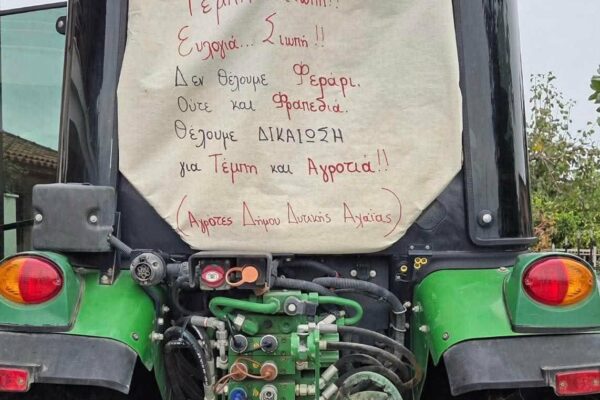 Τέμπη Σιωπή!!
Ευλογιά... Σιωπή!!
Δεν θέλουμε Φεράρι.
Ούτε και Φραπεδιά.
Θέλουμε ΔΙΚΑΙΩΣΗ
για Τέμπη και Αγροτιά!!
(Αγρότες Δήμου Δυτικής Αχαΐας)